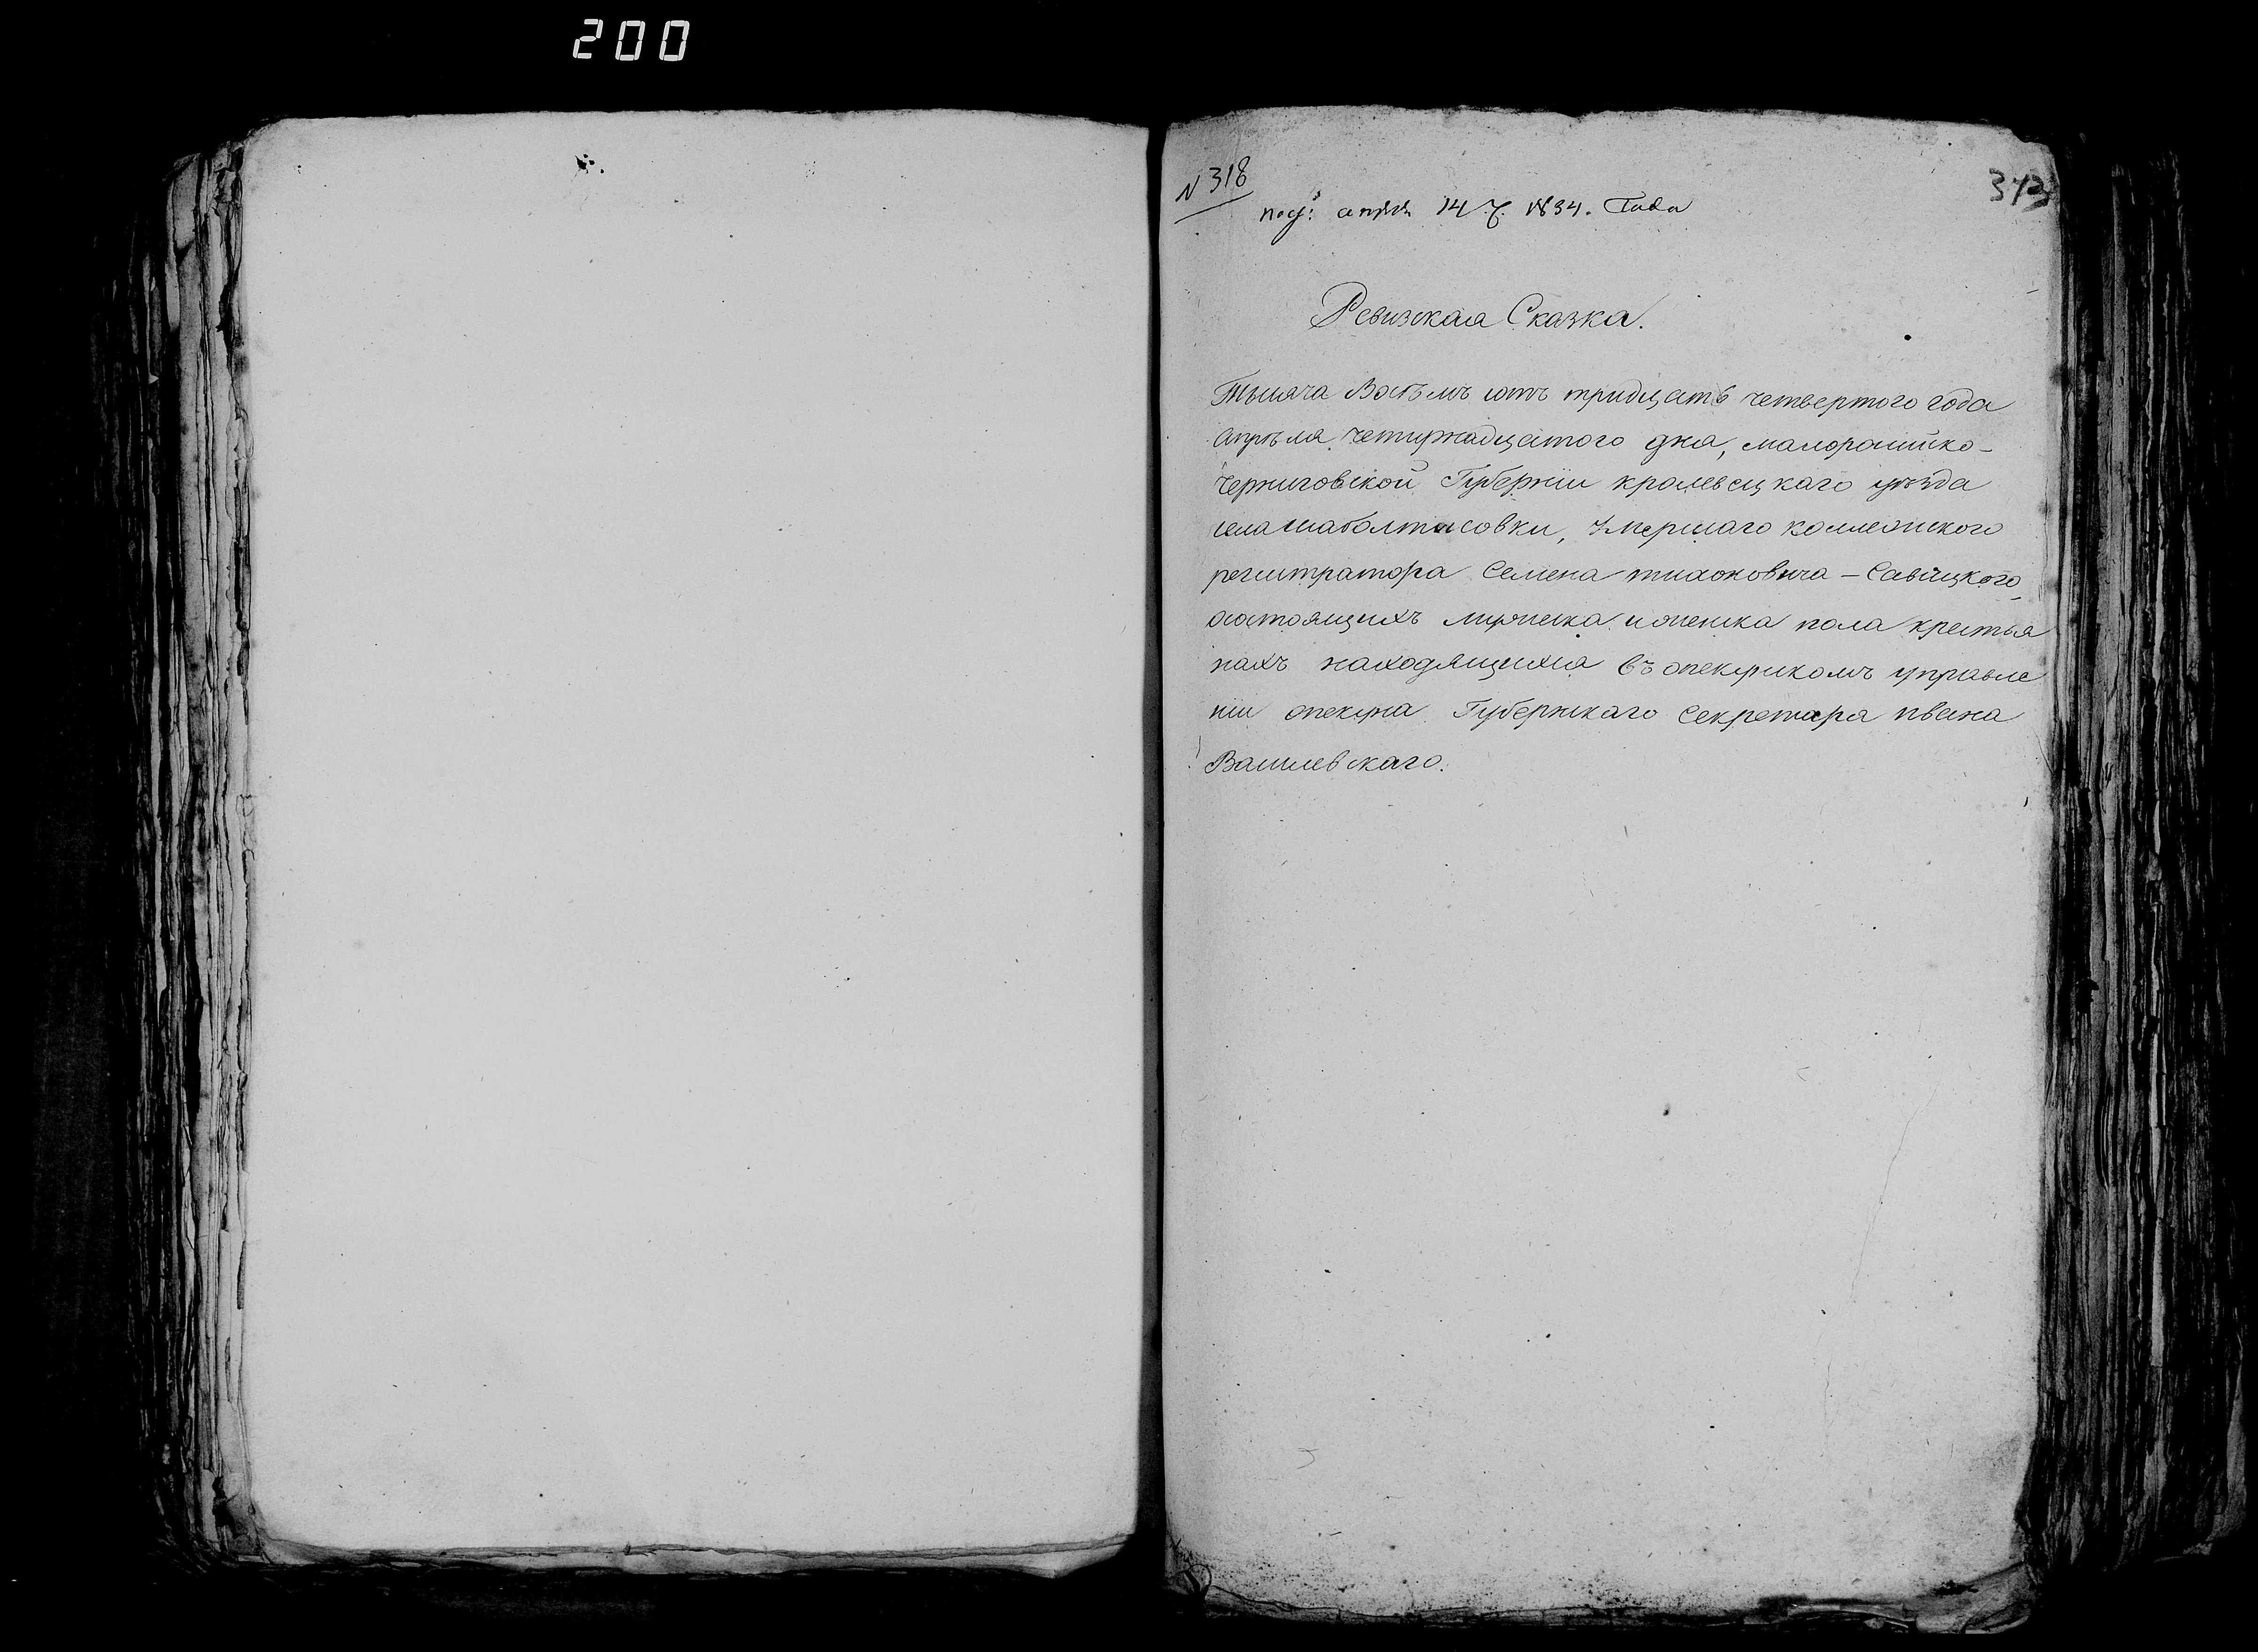 200
N 318
373
под: апреля 14 ч. 1834. Года
Ревизская Сказка.
Тысяча Восѣмъ сотъ тридцать четвертого года
апрѣля четирнадцатого дня, малоросийско-
черниговской Губернии кролевецкаго уѣзда
села шаболтасовки, умершаго колежского
регистратора Семена тихоновича - Савицкого,
состоящихъ мужеска и женска пола крестья
нахъ находящихся въ опекунскомъ управле
нии опекуна Губернскаго Секретаря ивана
Василевскаго.